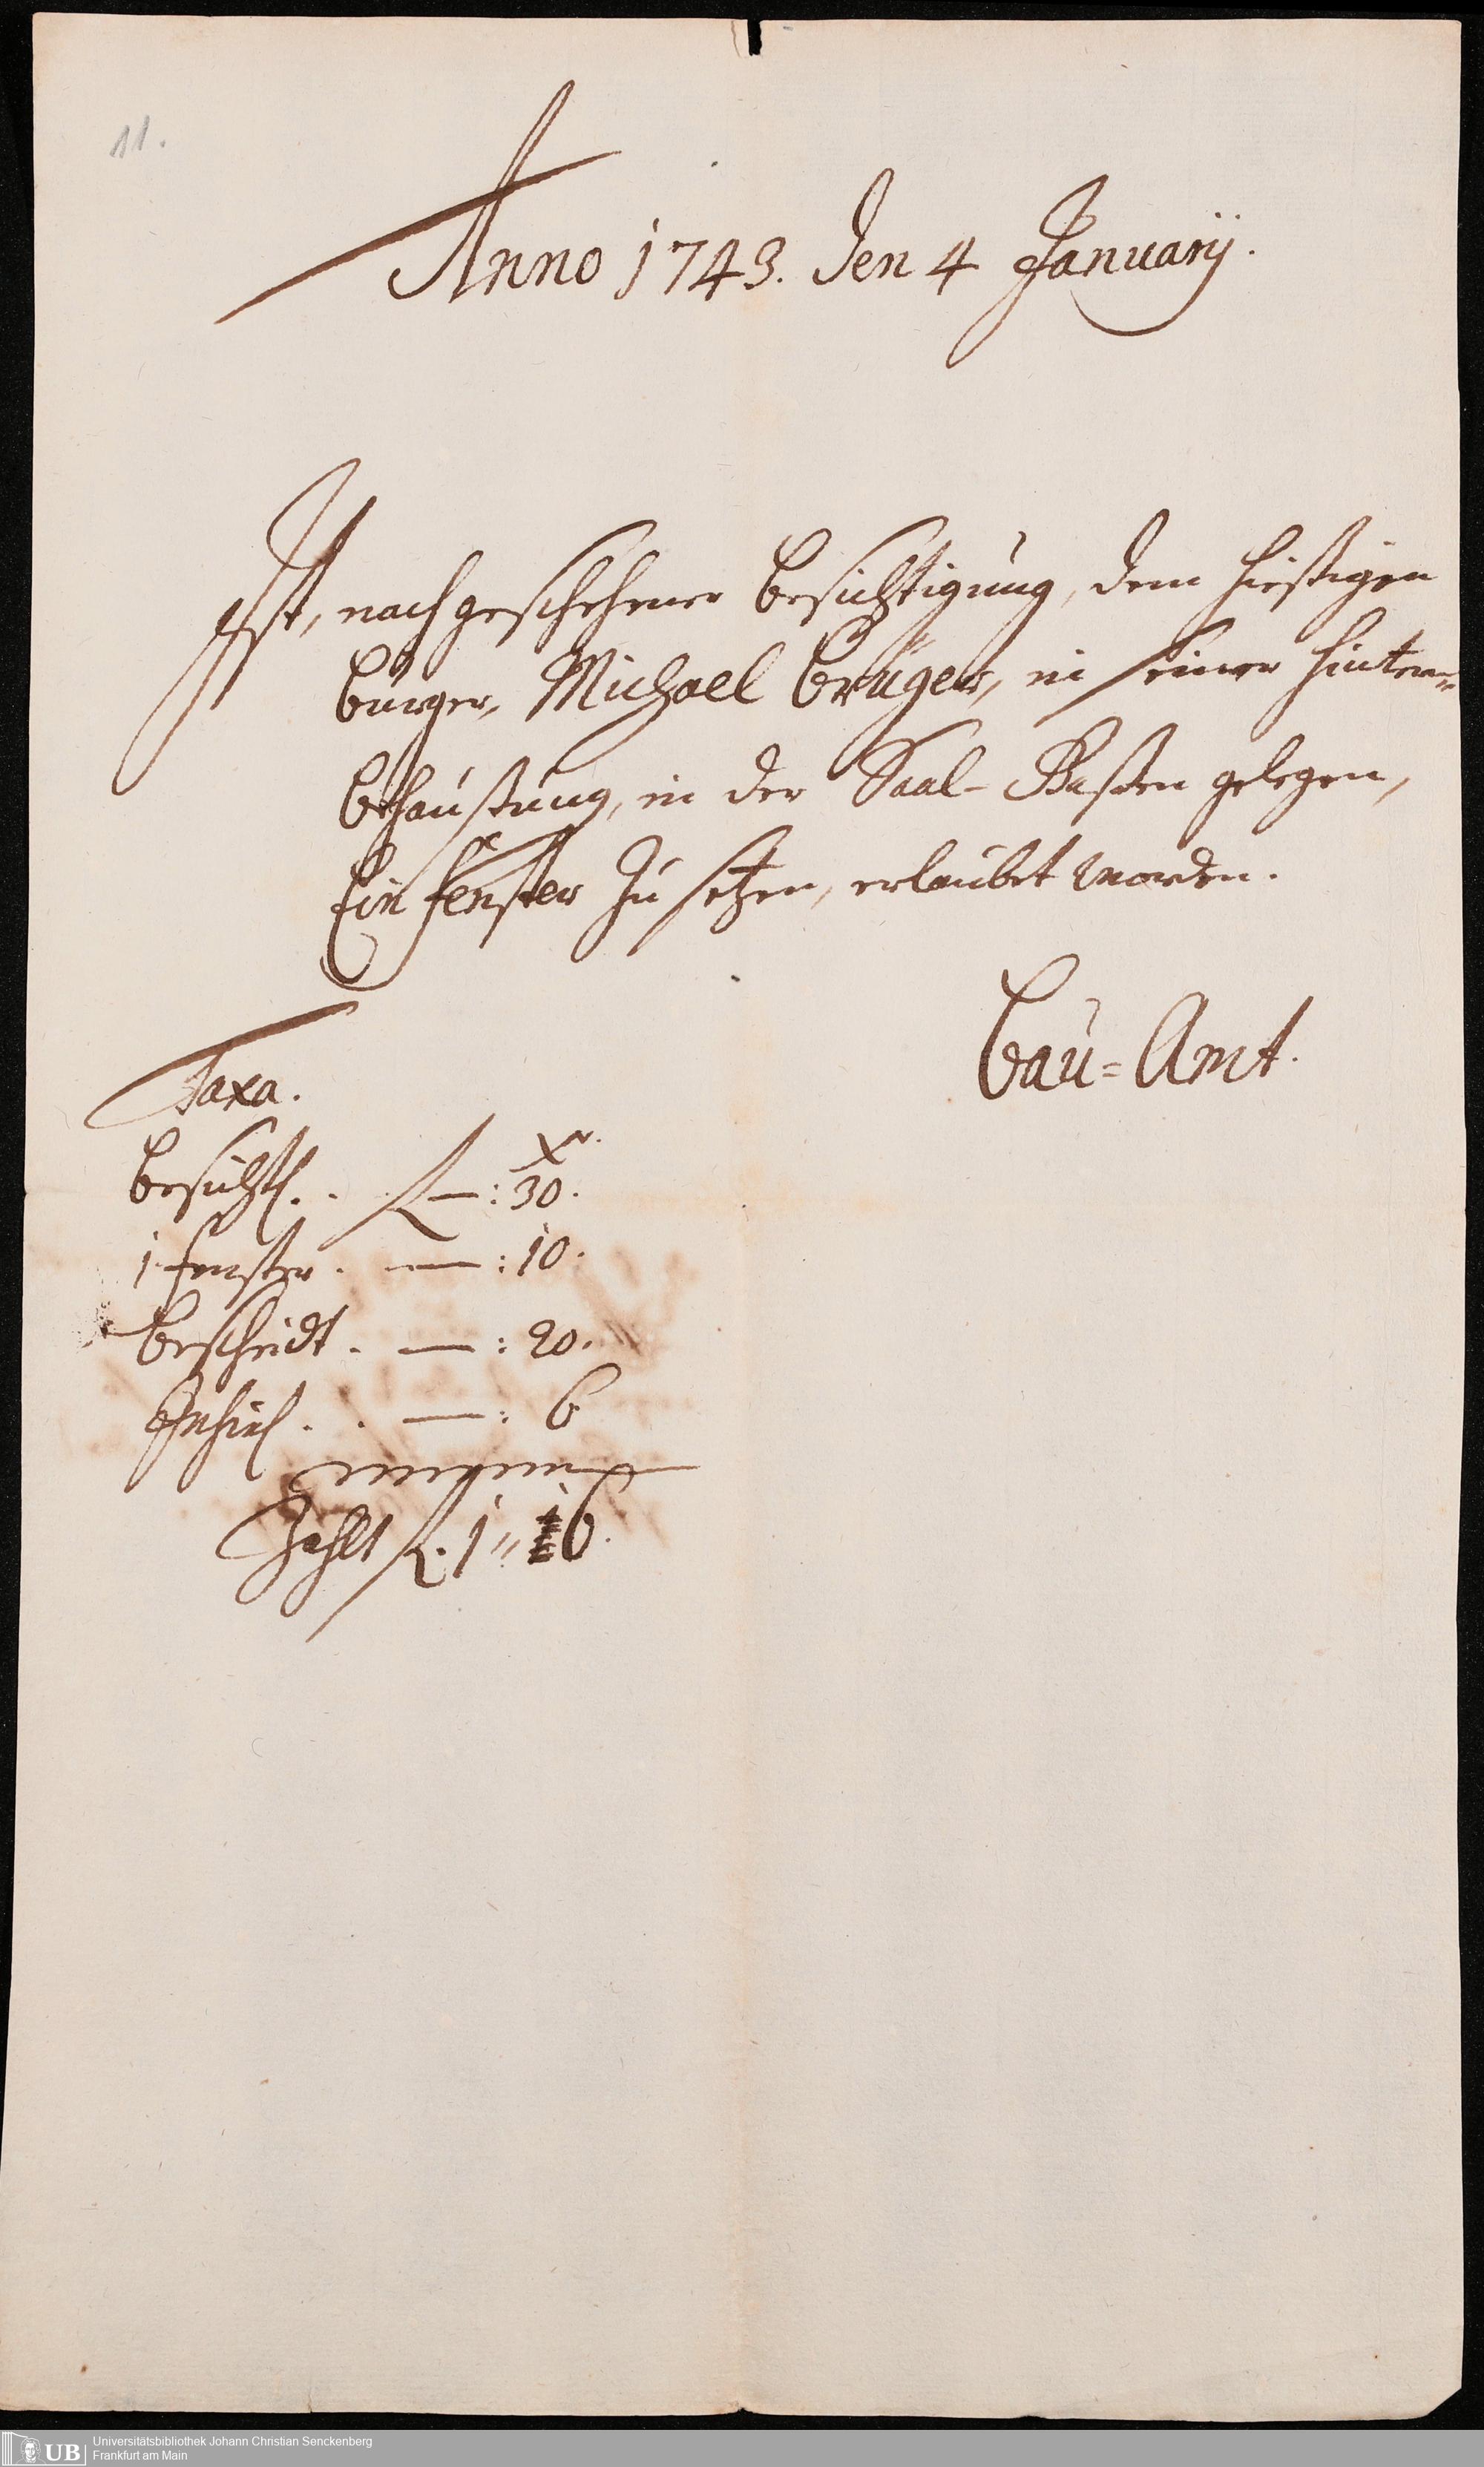 11.
Anno 1743. den 4 Januarij.
Ist, nach geschehener Besichtigung, dem hiesigen
Burger, Michael Brüger, in seiner hintern-
Behaußung, in der Saal-Gaßen gelegen,
Ein fenster zu setzen, erlaubet worden.
Bau=Amt.
Taxa.
xr.
Besicht. . . f. —: 30.
1. fenster . —: 10.
Bescheidt . —: 20.
. . —: 6
Zahlt f. 1 " 6.
UB Universitätsbibliothek Johann Christian Senckenberg
Frankfurt am Main